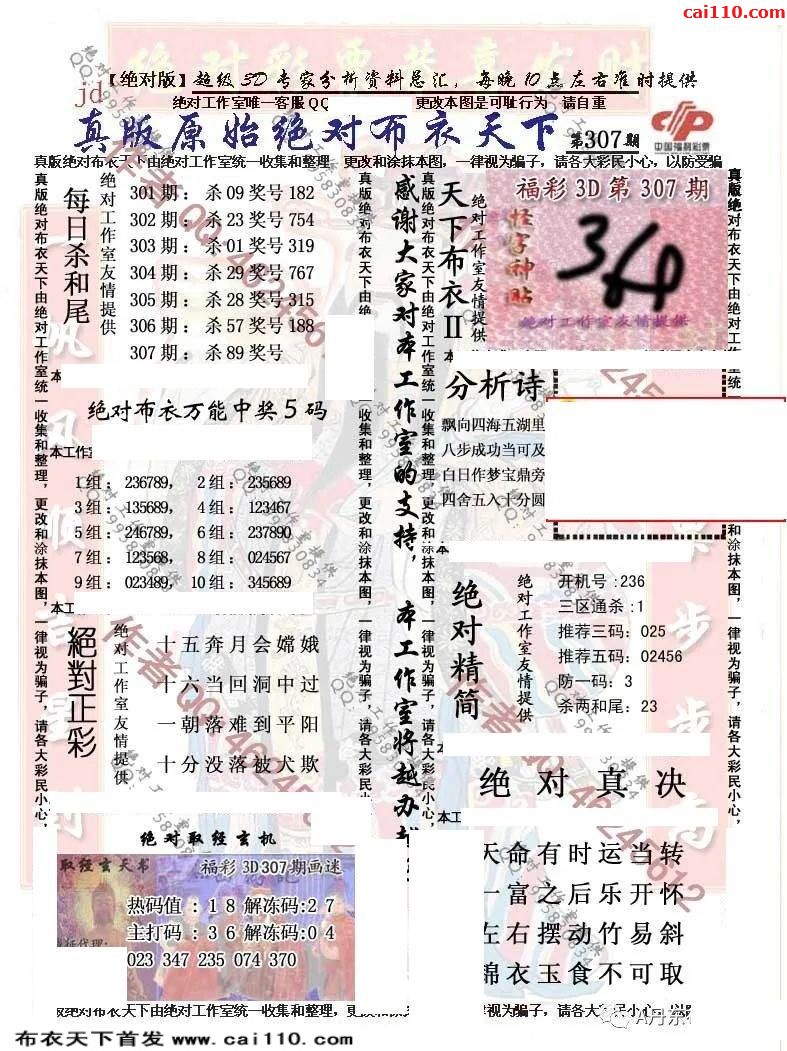 cai110.com
【绝对版】超级3D专家分析资料总汇，每晚10点左右准时提供
jd
绝对工作室唯一客服QQ 更改本图是可耻行为 请自重
真版原始绝对布衣天下 第307期
中国福利彩票
真版绝对布衣天下由绝对工作室统一收集和整理，更改和涂抹本图，一律视为骗子，请各大彩民小心，以防受骗
每日杀和尾
绝对工作室友情提供
301期：杀09奖号182
302期：杀23奖号754
303期：杀01奖号319
304期：杀29奖号767
305期：杀28奖号315
306期：杀57奖号188
307期：杀89奖号
绝对布衣万能中奖5码
本工作室
1组：236789， 2组：235689
3组：135689， 4组：123467
5组：246789， 6组：237890
7组：123568， 8组：024567
9组：023489， 10组：345689
絕對正彩
绝对工作室友情提供
十五奔月会嫦娥
十六当回洞中过
一朝落难到平阳
十分没落被犬欺
绝对取经玄机
取经玄天书
福彩3D307期画迷
热码值：18解冻码:27
主打码：36解冻码:04
023 347 235 074 370
感谢大家对本工作室的支持，本工作室将越办越
真版绝对布衣天下由绝对工作室统一收集和整理，更改和涂抹本图，一律视为骗子，请各大彩民小心，
天下布衣II
绝对工作室友情提供
福彩3D第307期
怪字神贴
绝对工作室友情提供
分析诗
飘向四海五湖里
八步成功当可及
白日作梦宝鼎旁
四舍五入十分圆
绝对精简
绝对工作室友情提供
开机号:236
三区通杀:1
推荐三码: 025
推荐五码: 02456
防一码: 3
杀两和尾: 23
绝对真决
天命有时运当转
一富之后乐开怀
左右摆动竹易斜
锦衣玉食不可取
作者QQ 46245612
版绝对布衣天下由绝对工作室统一收集和整理，更改和涂抹
视为骗子，请各大彩民小心，以防
布衣天下首发 www.cai110.com
A丹东